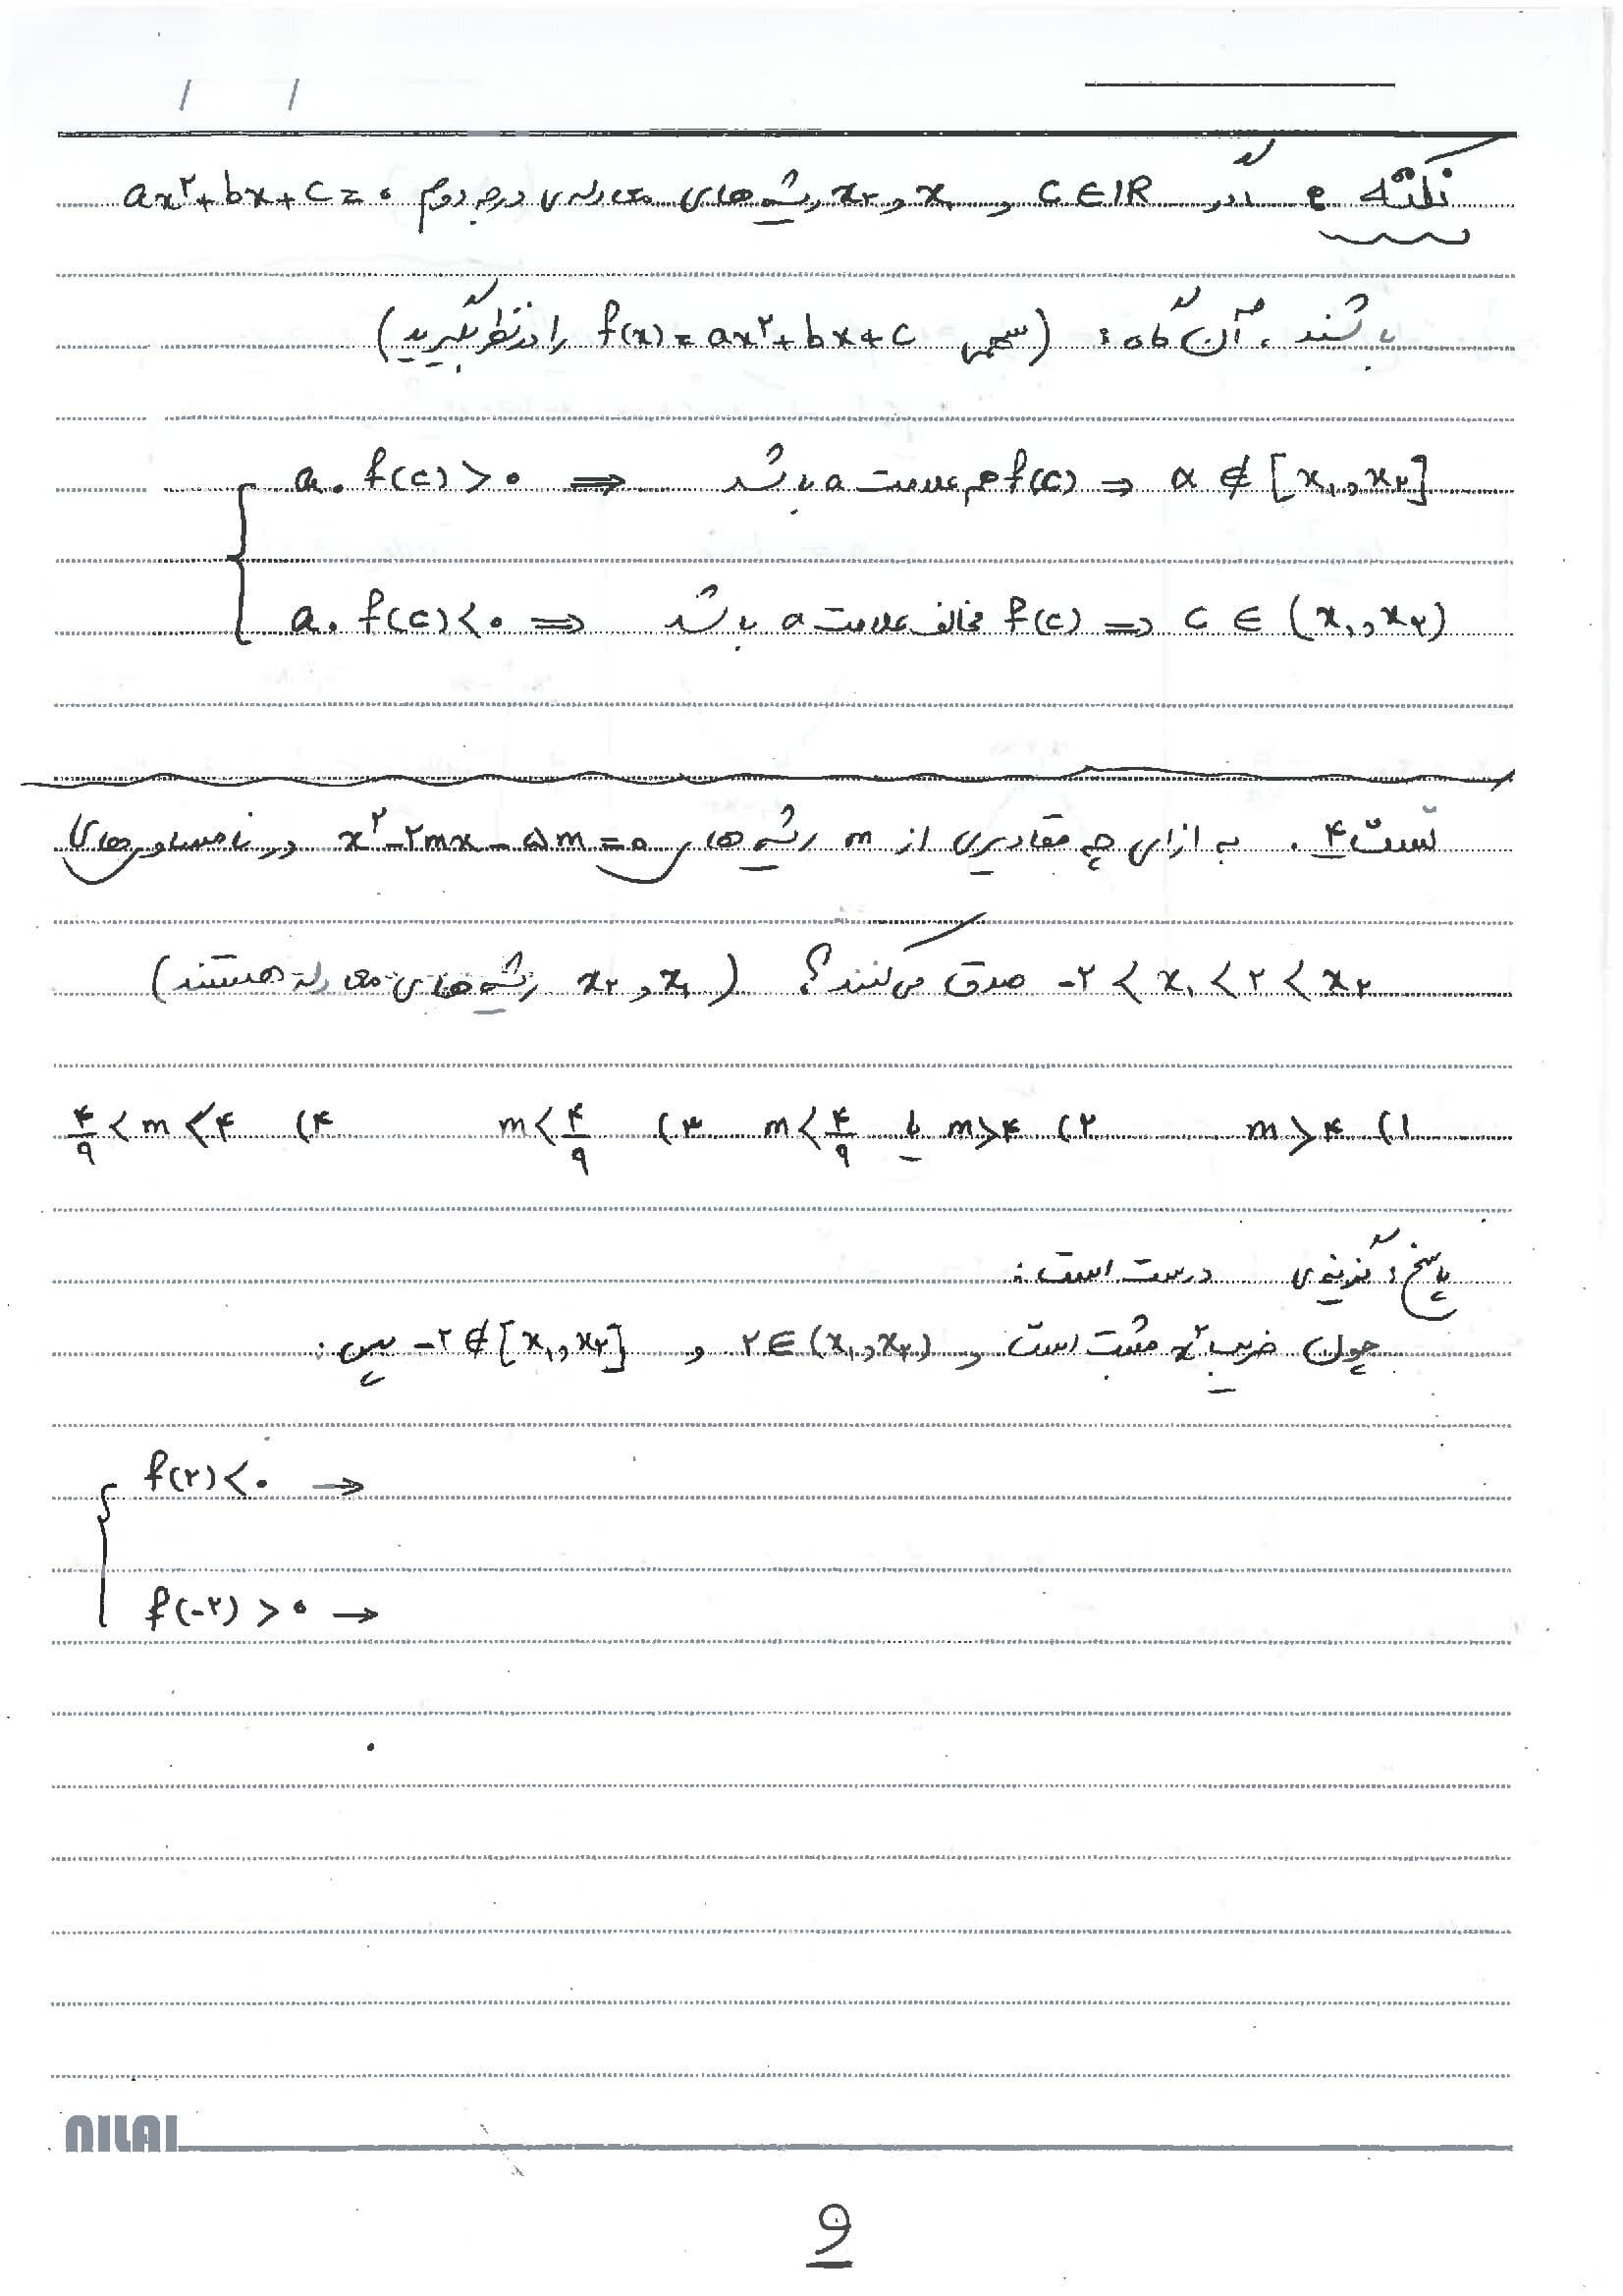 نکته ۶ اگر C∈IR و x₁ و x₂ ریشه‌های معادله‌ی درجه دوم ax²+bx+c=۰
باشند، آن گاه: (سهمی f(x)=ax²+bx+c را در نظر بگیرید)
a.f(c)>۰ ⇒ f(c) هم علامت a باشد ⇒ α∉[x₁,x₂]
a.f(c)<۰ ⇒ f(c) مخالف علامت a باشد ⇒ c∈(x₁,x₂)
تست ۴. به ازای چه مقادیری از m ریشه‌های x²-۲mx-۵m=۰ در نامساوی‌های
-۲<x₁<۲<x₂ صدق می‌کنند؟ (x₁ و x₂ ریشه‌های معادله هستند)
۱) m>۴ ۲) m>۴ یا m<۴/۹ ۳) m<۴/۹ ۴) ۴/۹<m<۴
پاسخ: گزینه‌ی درست است:
چون ضریب x² مثبت است و ۲∈(x₁,x₂) و -۲∉[x₁,x₂] پس:
f(۲)<۰ →
f(-۲)>۰ →
NILAI
و